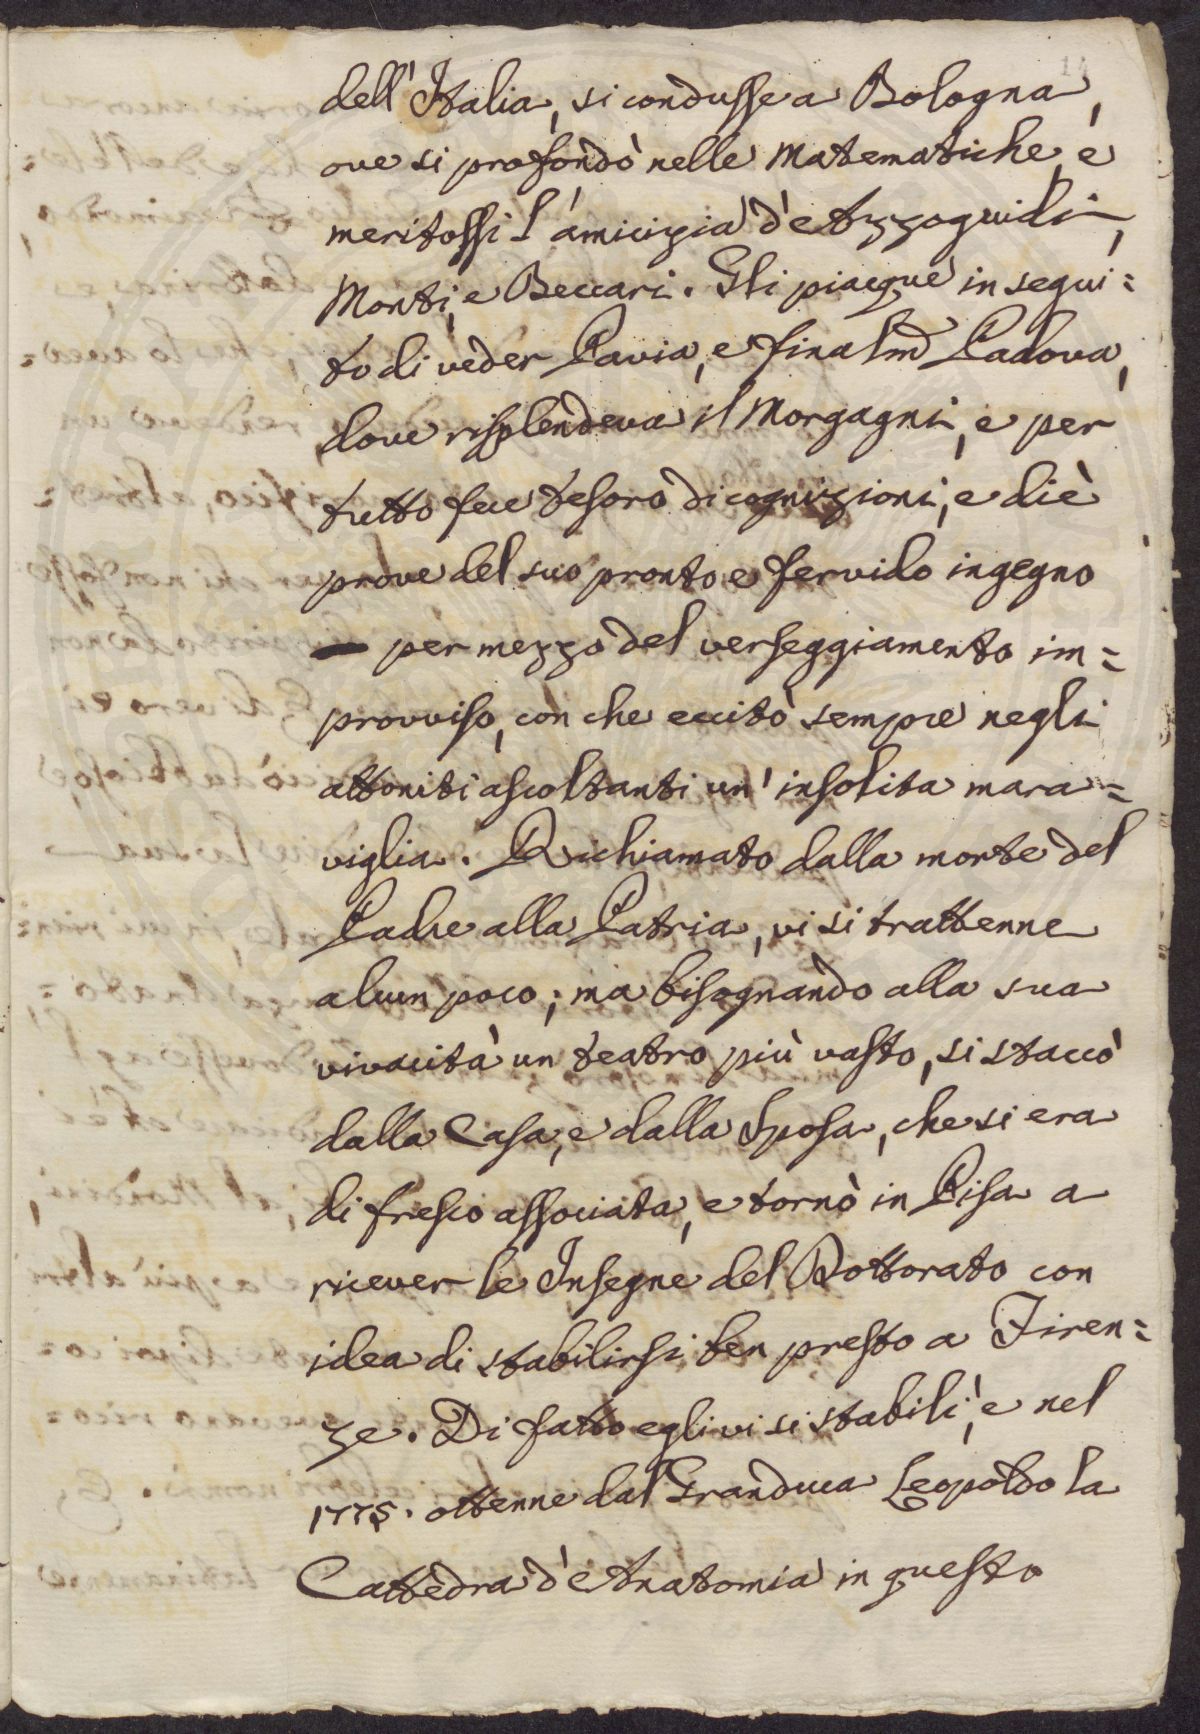 14
dell'Italia, si condusse a Bologna,
ove si profondò nelle Matematiche, e
meritossi l'amicizia d'Azzoguidi,
Monti, e Beccari. Gli piacque in segui=
to di veder Pavia, e finalmẽ Padova,
dove risplendeva il Morgagni, e per
tutto fece tesoro di cognizioni, e diè
prove del suo pronto e fervido ingegno
— per mezzo del verseggiamento im=
provviso, con che eccitò sempre negli
attoniti ascoltanti un'insolita mara=
viglia. Richiamato dalla morte del
Padre alla Patria, vi si trattenne
alcun poco; ma bisognando alla sua
vivacità un teatro più vasto, si staccò
dalla Casa, e dalla Sposa, che si era
di fresco associata, e tornò in Pisa a
ricever le Insegne del Dottorato con
idea di stabilirsi ben presto a Firen=
ze. Di fatto egli vi si stabilì, e nel
1775. ottenne dal Granduca Leopoldo la
Cattedra d'Anatomia in questo